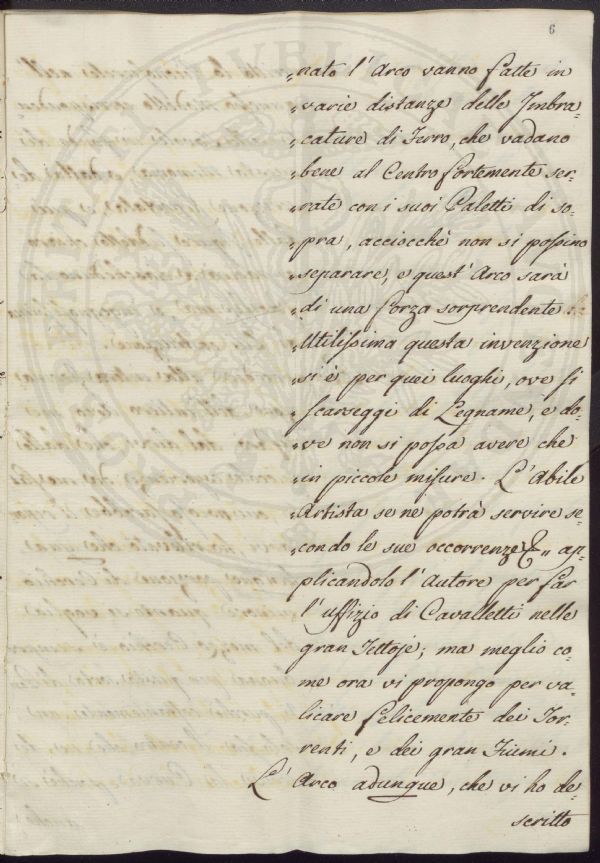 6
„nato l'Arco vanno fatte in
„varie distanze delle Imbra-
„cature di Ferro, che vadano
„bene al Centro fortemente ser-
„rate con i suoi Paletti di so-
„pra, acciocchè non si possino
„separare, e quest'Arco sarà
„di una forza sorprendente.
„Utilissima questa invenzione
„si è per quei luoghi, ove si
„scarseggi di Legname, e do-
„ve non si possa avere che
„in piccole misure. L'Abile
„Artista se ne potrà servire se-
„condo le sue occorrenze &„ ap-
plicandolo l'Autore per far
l'uffizio di Cavalletti nelle
gran Tettoje; ma meglio co-
me ora vi propongo per va-
licare felicemente dei Tor-
renti, e dei gran Fiumi.
L'Arco adunque, che vi ho de-
scritto